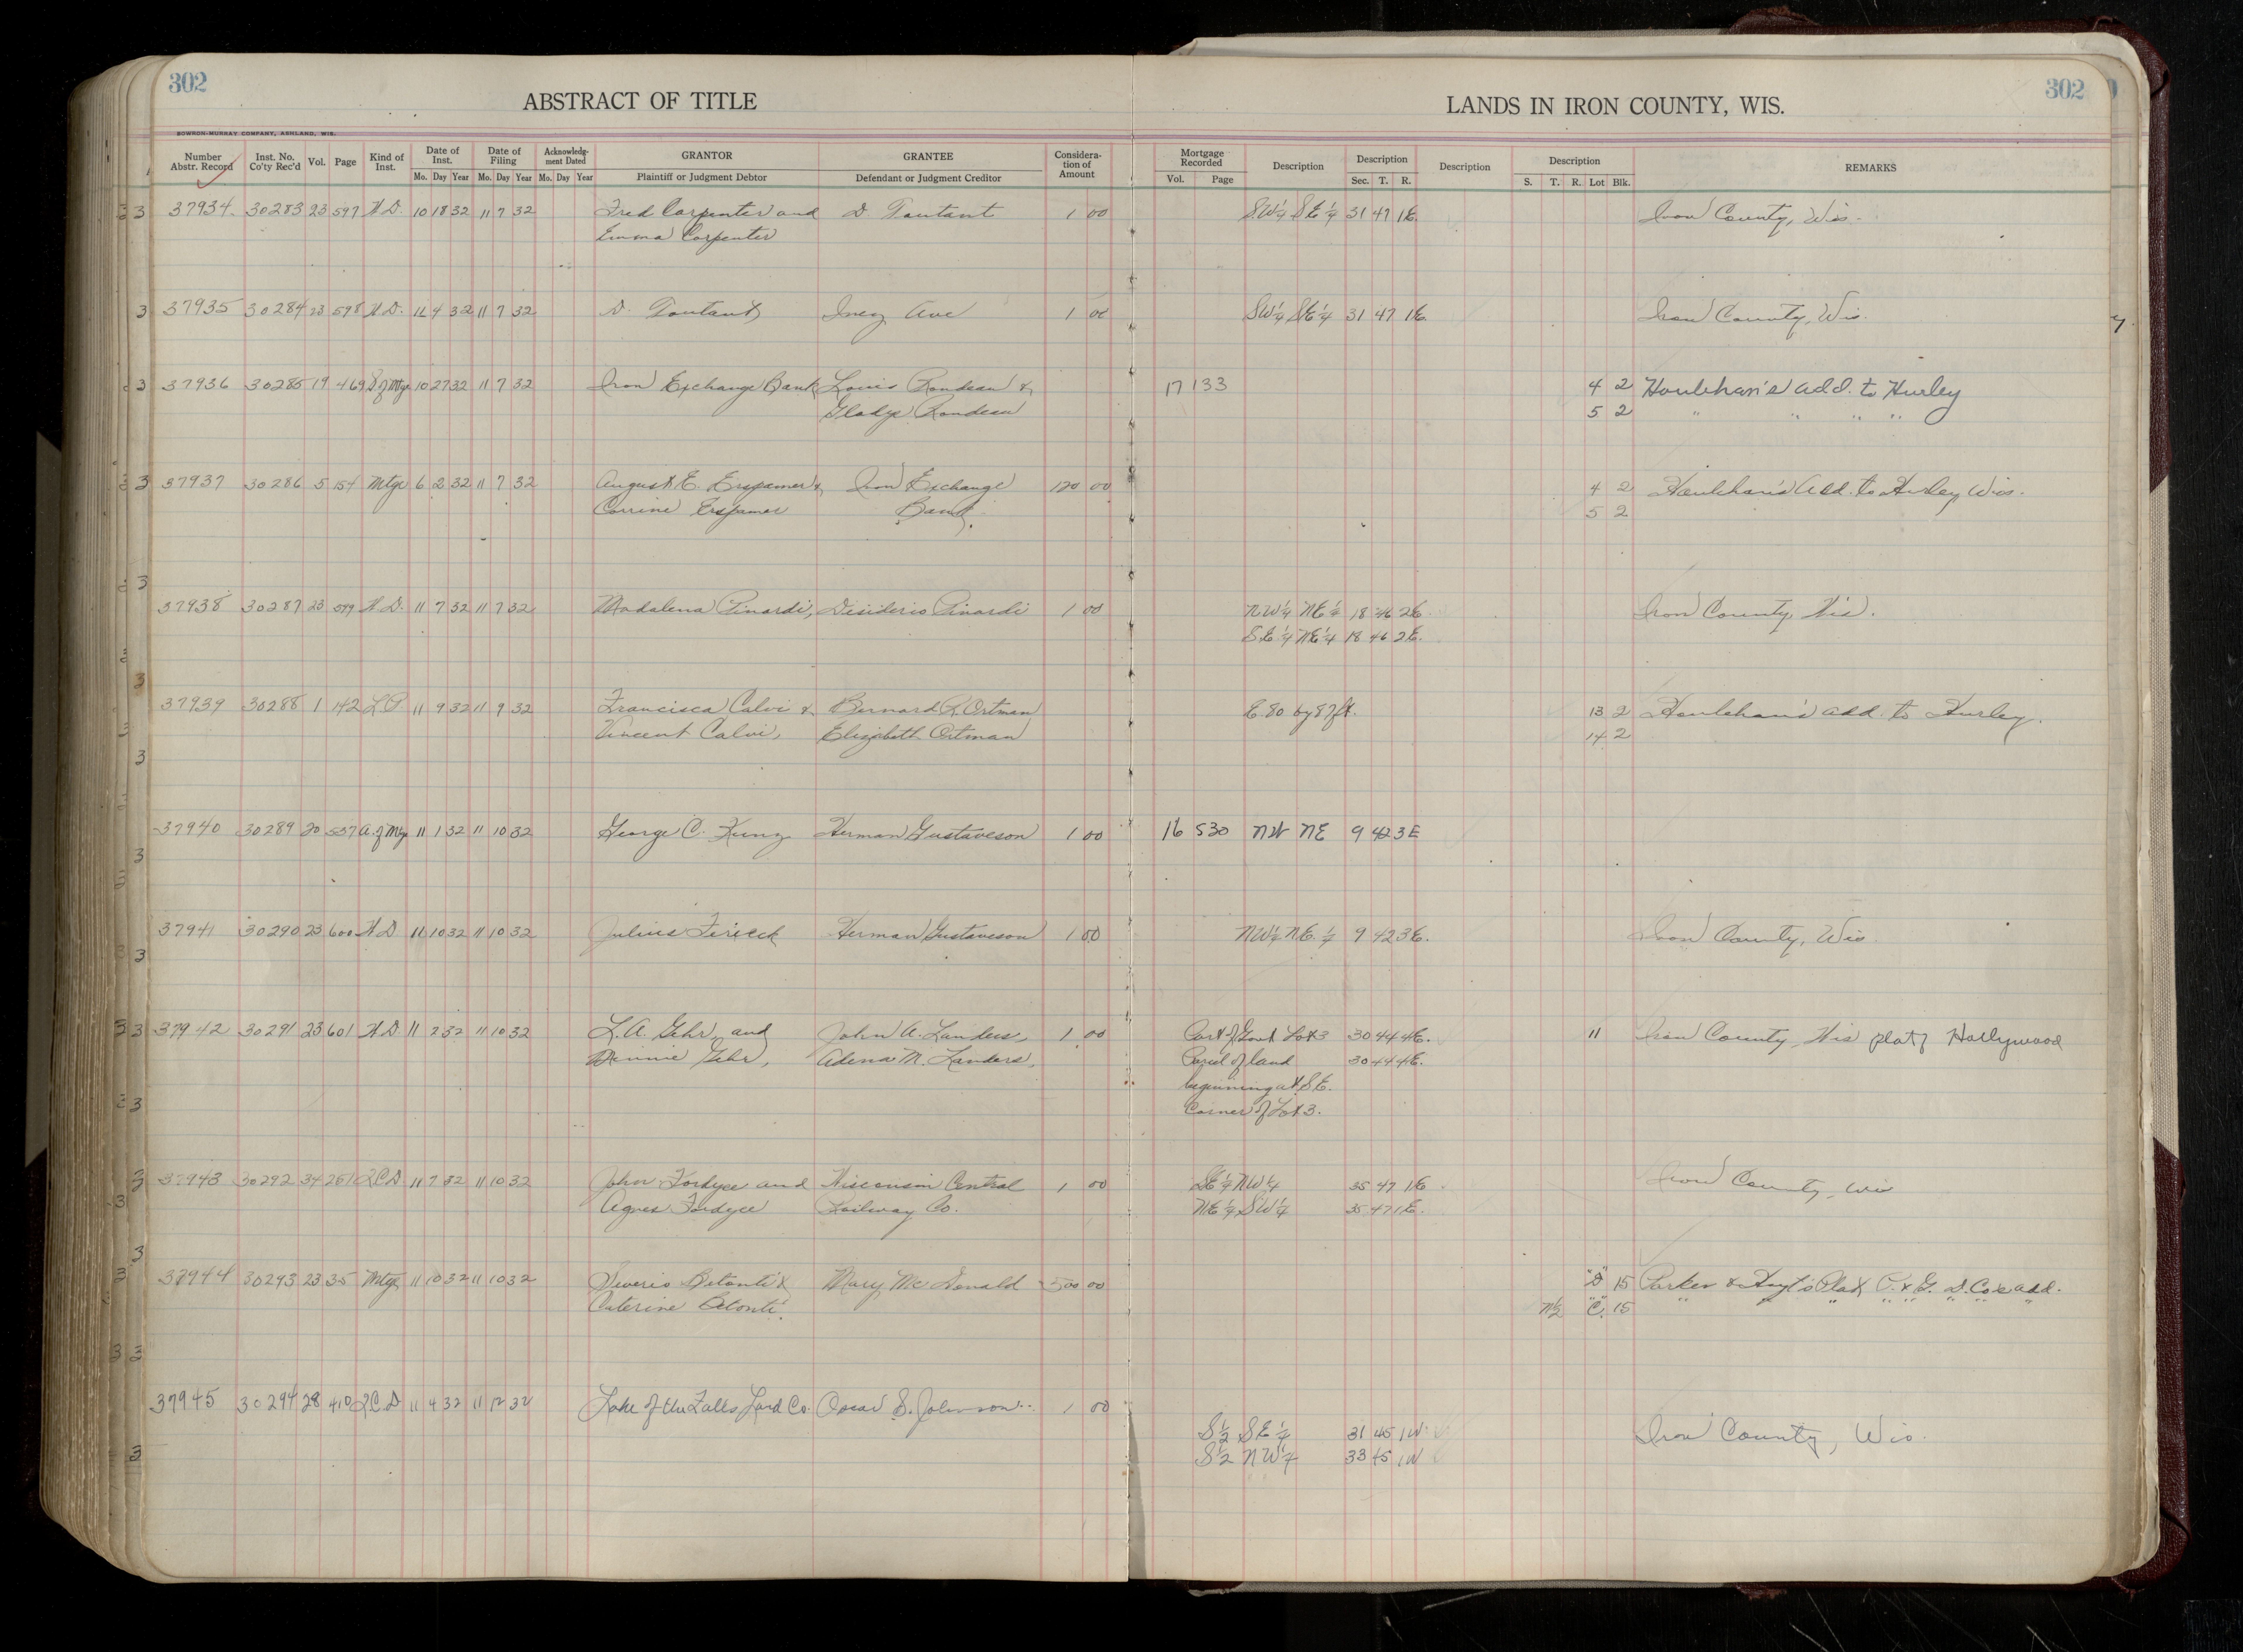 302
ABSTRACT OF TITLE
LANDS IN IRON COUNTY, WIS.
302
BOWRON-MURRAY COMPANY, ASHLAND, WIS.
Number Abstr. Record Inst. No. Co'ty Rec'd Vol. Page Kind of Inst. Date of Inst. Date of Filing Acknowledgment Dated GRANTOR GRANTEE Consideration of Amount Mortgage Recorded Description Description Description Description REMARKS
Mo. Day Year Mo. Day Year Mo. Day Year Plaintiff or Judgment Debtor Defendant or Judgment Creditor Vol. Page Sec. T. R. S. T. R. Lot Blk.
37934 30283 23 597 W.D. 10 18 32 11 7 32 Fred Carpenter and D. Toutant 1 00 SW¼ SE¼ 31 47 1E. Iron County, Wis.
Emma Carpenter
37935 30284 23 598 W.D. 11 4 32 11 7 32 D. Toutant Inez Ave 1 00 SW¼ SE¼ 31 47 1E. Iron County, Wis.
37936 30285 19 469 S of Mtge 10 27 32 11 7 32 Iron Exchange Bank Louis Rondeau & 17 133 4 2 Houlehan's add. to Hurley
Gladys Rondeau 5 2 " " " "
37937 30286 5 154 Mtge 6 2 32 11 7 32 August E. Erspamer & Iron Exchange 120 00 4 2 Houlehan's Add. to Hurley, Wis.
Corrine Erspamer Bank. 5 2
37938 30287 23 599 W.D. 11 7 32 11 7 32 Madalena Pinardi, Desiderio Pinardi 1 00 NW¼ NE¼ 18 46 2E. Iron County, Wis.
SE¼ NE¼ 18 46 2E.
37939 30288 1 142 LP 11 9 32 11 9 32 Francisca Calvi & Bernard R. Ortman E. 80 by 87 ft. 13 2 Houlehan's add. to Hurley.
Vincent Calvi, Elizabeth Ortman 14 2
37940 30289 20 537 A. of Mtge 11 1 32 11 10 32 George C. Kunz Herman Gustaveson 1 00 16 530 NW NE 9 42 3E
37941 30290 23 600 W.D 11 10 32 11 10 32 Julius Herman Gustaveson 1 00 NW¼ NE ¼ 9 42 3E. Iron County, Wis.
37942 30291 23 601 W.D 11 2 32 11 10 32 L.A. Gehr, and John A. Landers, 1 00 Part of Govt Lot 3 30 44 4E. 11 Iron County, Wis plat of Hollywood
Minnie Gehr, Adena M. Landers, Parcel of land 30 44 4E.
beginning at S.E.
Corner of Lot 3.
37943 30292 34 251 Q.C.D 11 7 32 11 10 32 John Fordyce and Wisconsin Central 1 00 SE¼ NW¼ 35 47 1E Iron County, Wis
Agnes Fordyce Railway Co. NE¼ SW¼ 35 47 1E.
37944 30293 23 35 Mtge 11 10 32 11 10 32 Saverio Betonti & Mary Mc Donald 500 00 "D" 15 Parker & Hoyt's Plat C. & G. D. Co's add.
Caterine Betonti. N½ "C" 15 " " " " " " " "
37945 30294 28 410 Q.C.D 11 9 32 11 12 32 Lake of the Falls Land Co. Oscar S. Johnson 1 00
S½ SE¼ 31 45 1W Iron County, Wis.
S½ NW¼ 33 45 1W